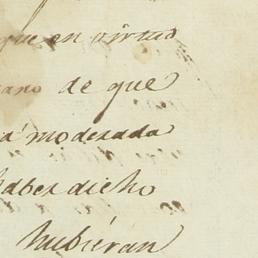 que en virtud
ano de que
á moderada
haber dicho
hubieran